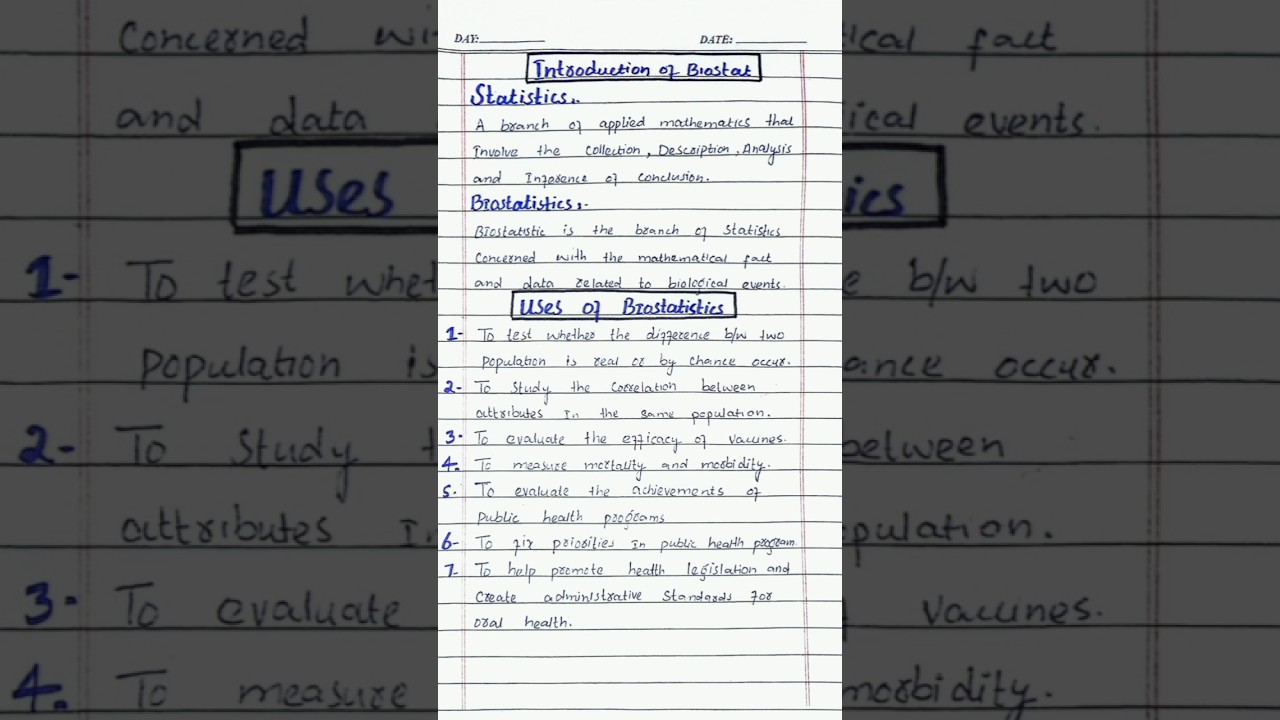 DAY:
DATE:
Introduction of Biostat
Statistics:-
A branch of applied mathematics that
Involve the Collection, Description, Analysis
and Inference of conclusion.
Biostatistics:-
Biostatistic is the branch of statistics
Concerned with the mathematical fact
and data related to biological events.
Uses of Biostatistics
1- To test whether the difference b/w two
Population is real or by chance occur.
2- To study the Correlation between
attributes In the same population.
3- To evaluate the efficacy of vaccines.
4. To measure mortality and morbidity.
5. To evaluate the achievements of
Public health programs
6- To fix priorities In public health program
7- To help promote health legislation and
Create administrative Standards for
oral health.